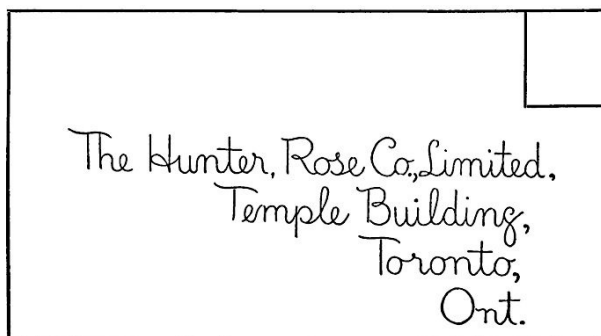 The Hunter, Rose Co., Limited,
Temple Building,
Toronto,
Ont.